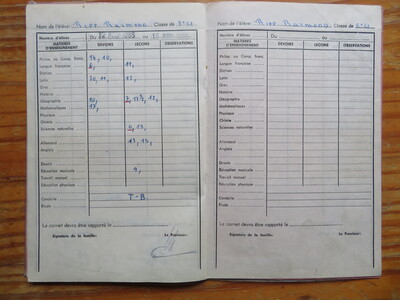 Nom de l'élève: Classe de
Nombre d'élèves Du au
MATIÈRES D'ENSEIGNEMENT DEVOIRS LEÇONS OBSERVATIONS
Philos. ou Comp. franç. 14, 10,
Langue française 11,
Diction
Latin 20, 11, 12,
Grec
Histoire
Géographie 12,
Mathématiques
Physique
Chimie
Sciences naturelles 13,
Allemand 13, 13,
Anglais
Dessin
Education musicale 9,
Travail manuel
Education physique
Conduite T-B
Etude
Le carnet devra être rapporté le
Signature de la famille: Le Proviseur:
Nom de l'élève: Classe de
Nombre d'élèves Du au
MATIÈRES D'ENSEIGNEMENT DEVOIRS LEÇONS OBSERVATIONS
Philos. ou Comp. franç.
Langue française
Diction
Latin
Grec
Histoire
Géographie
Mathématiques
Physique
Chimie
Sciences naturelles
Allemand
Anglais
Dessin
Education musicale
Travail manuel
Education physique
Conduite
Etude
Le carnet devra être rapporté le
Signature de la famille: Le Proviseur: